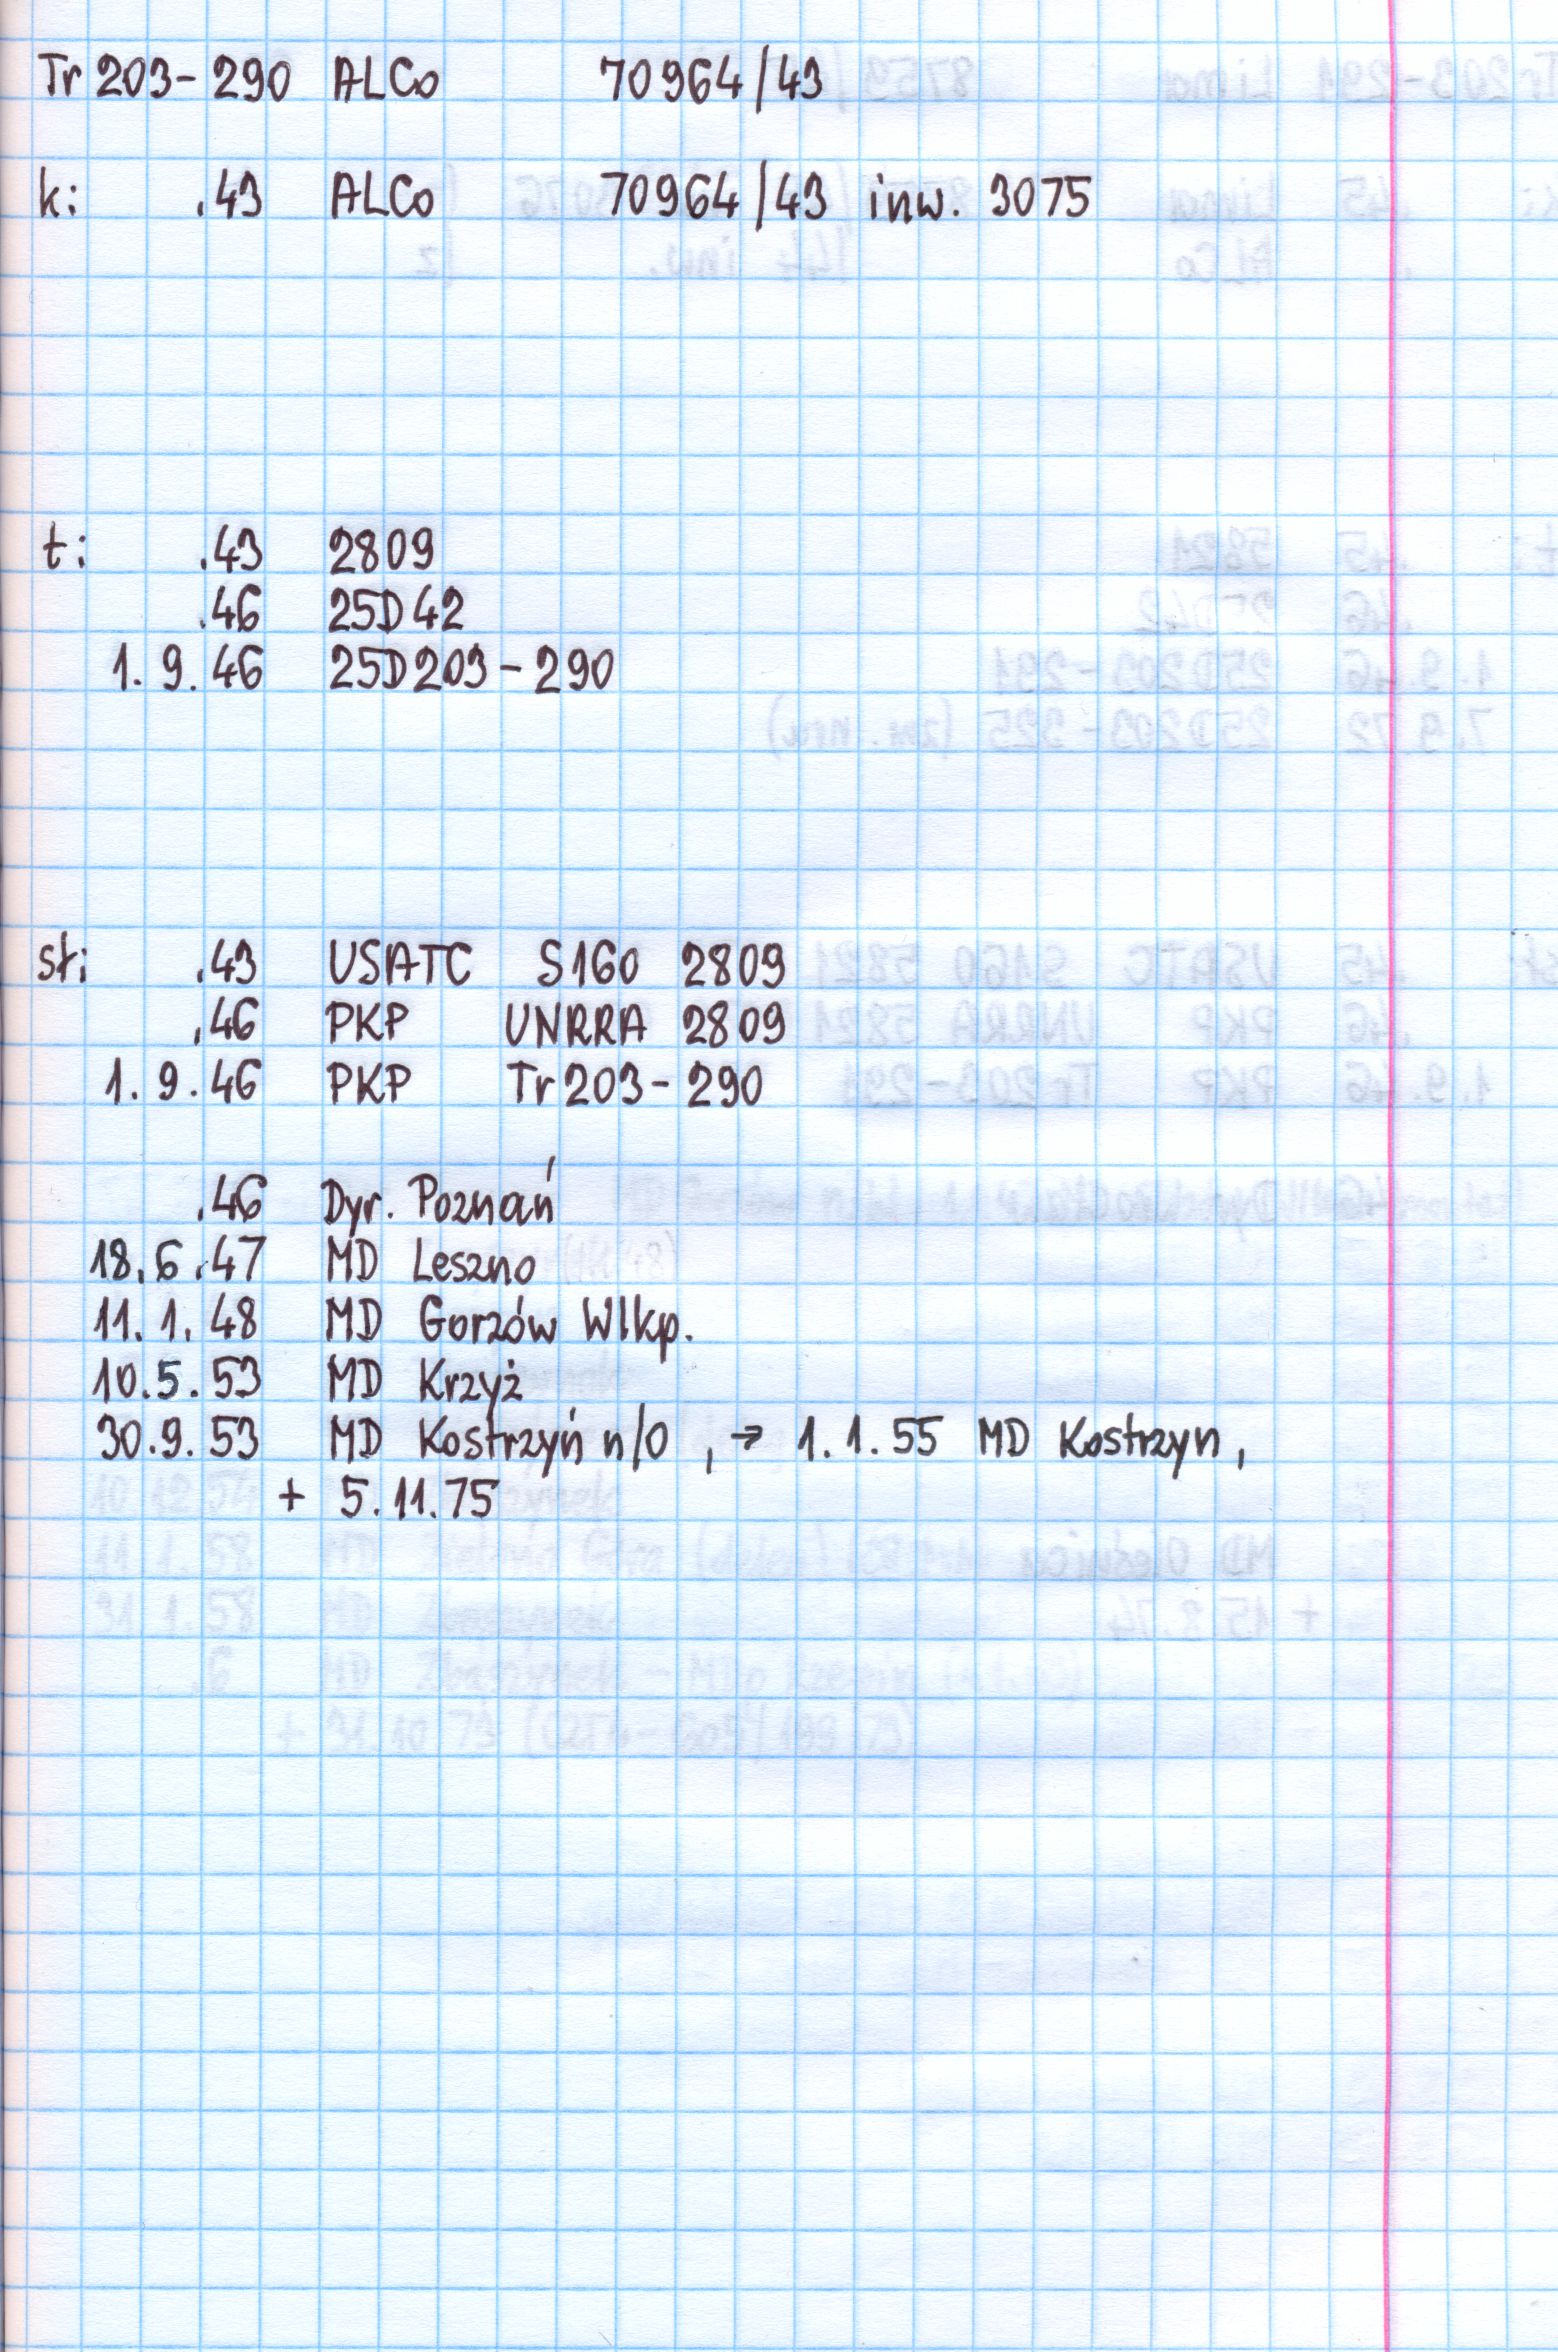 Tr 203-290 ALCo 70964/43
k: .43 ALCo 70964/43 inw. 3075
t: .43 2809
.46 25D42
1.9.46 25D203-290
st: .43 USATC S160 2809
.46 PKP UNRRA 2809
1.9.46 PKP Tr203-290
.46 Dyr. Poznań
18.6.47 MD Leszno
11.1.48 MD Gorzów Wlkp.
10.5.53 MD Krzyż
30.9.53 MD Kostrzyń n/O, → 1.1.55 MD Kostrzyn,
+ 5.11.75